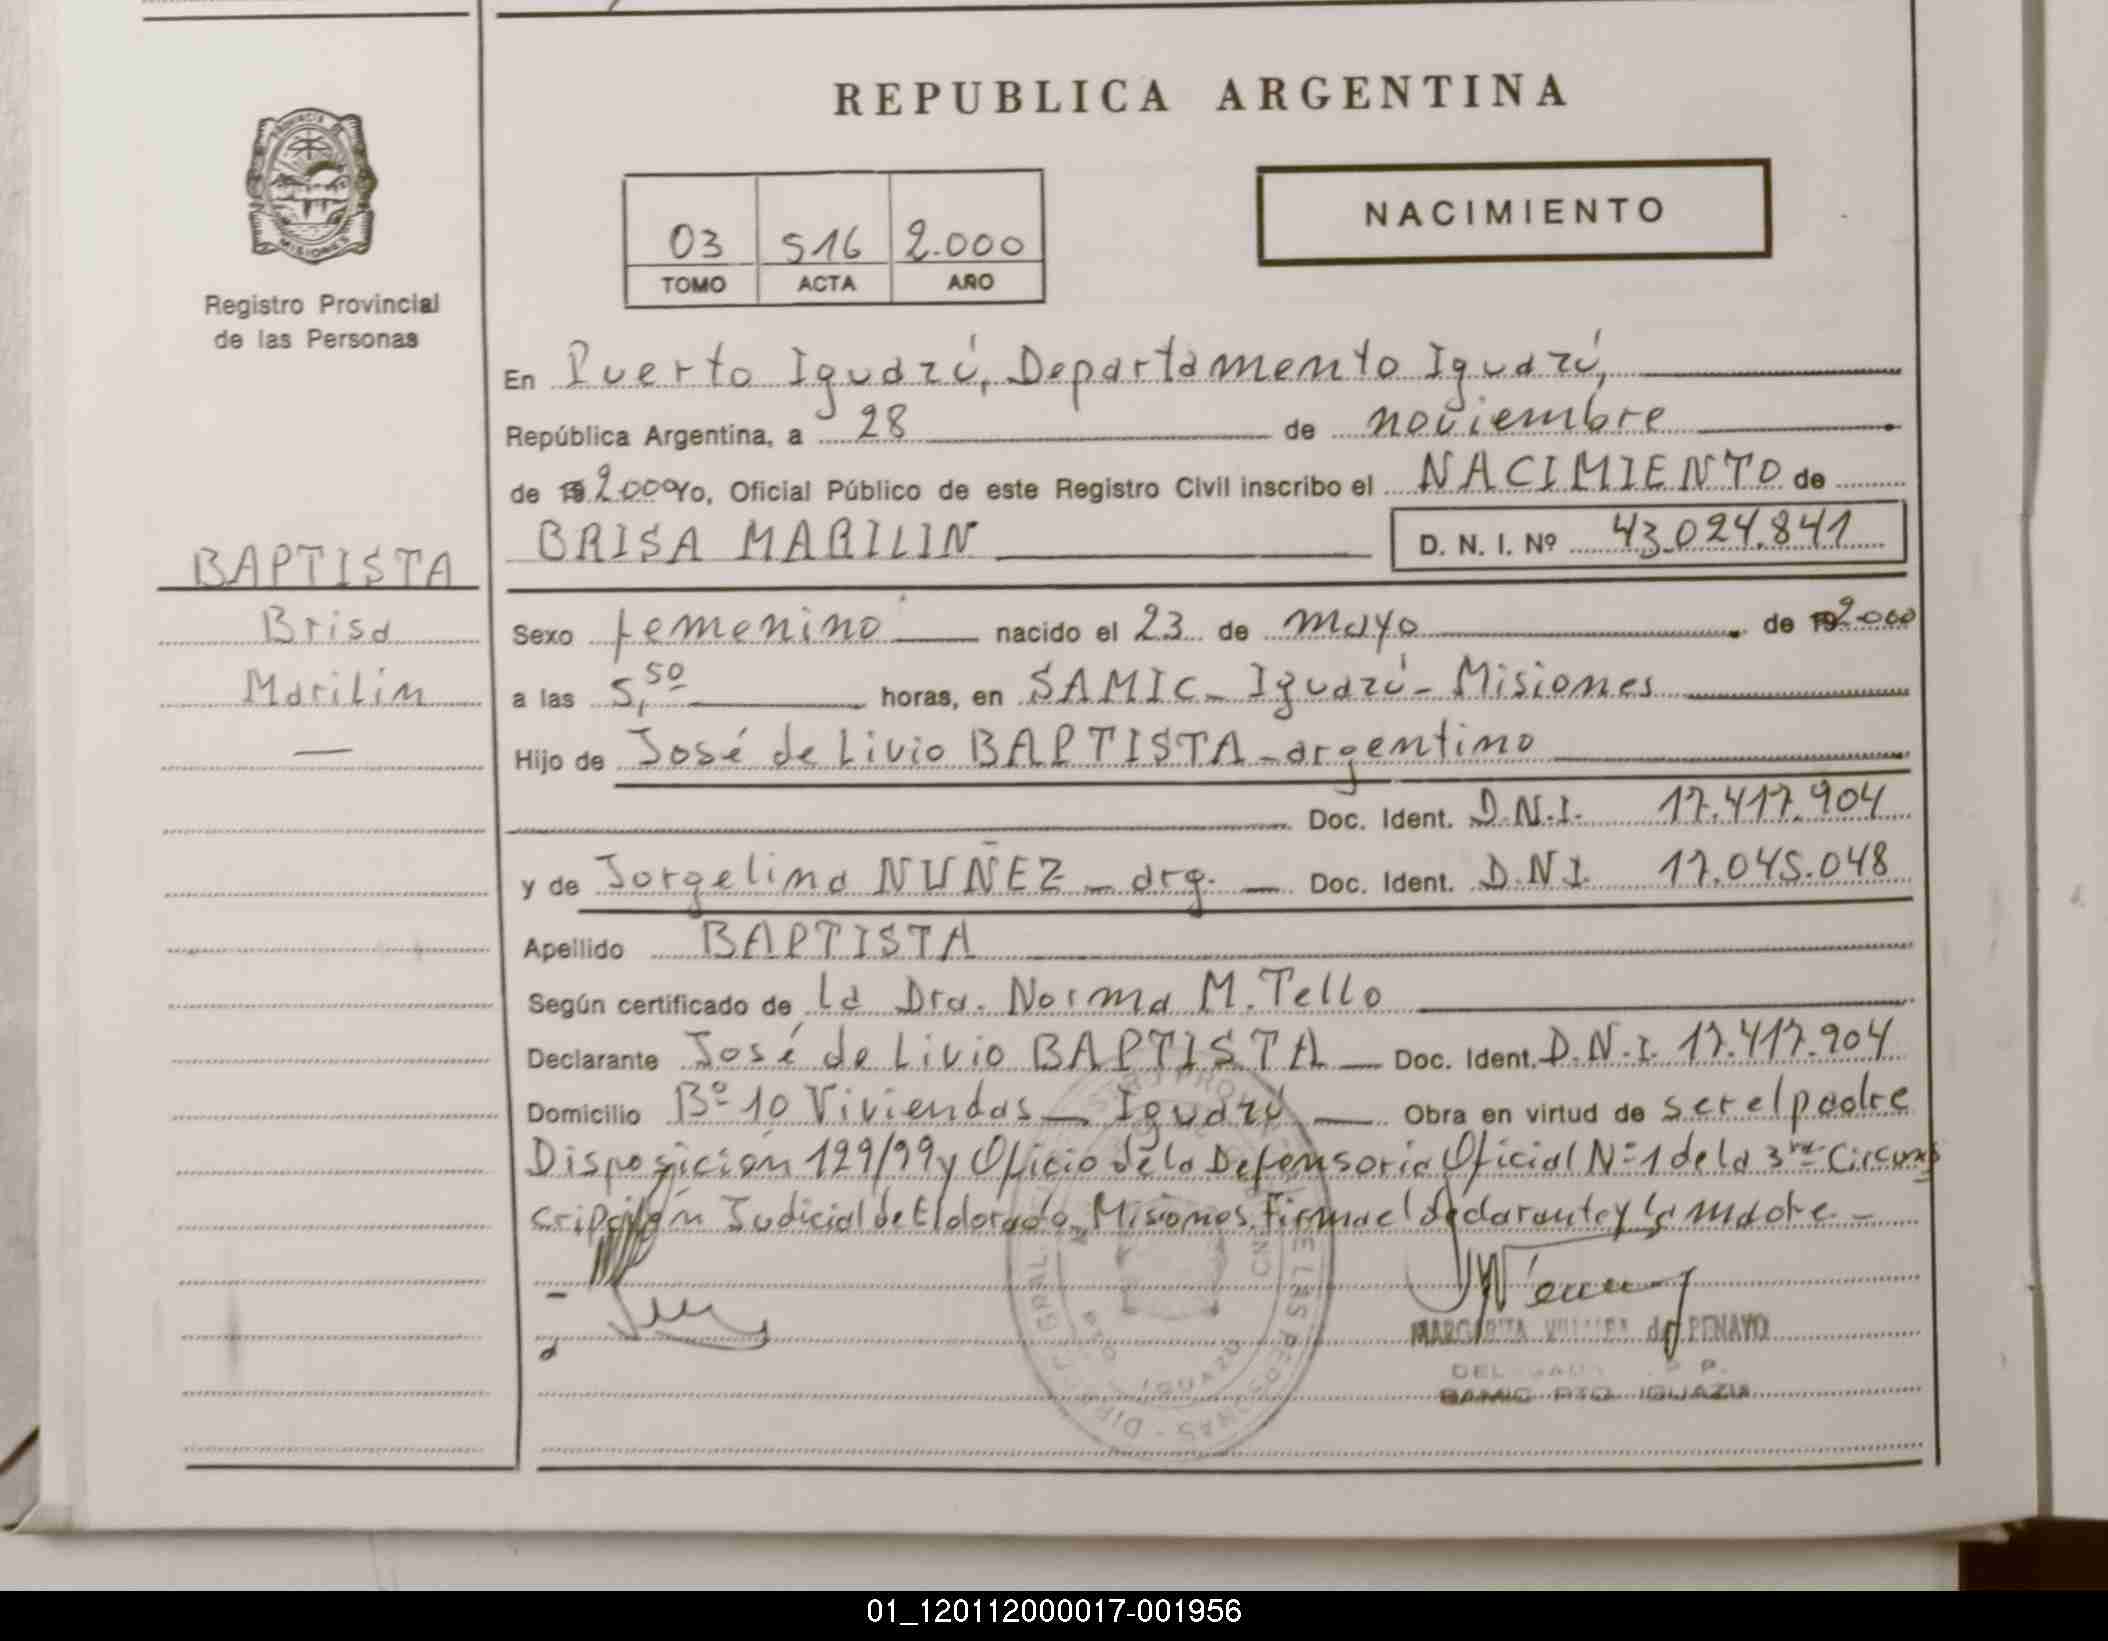 REPUBLICA ARGENTINA
PROVINCIA DE
MISIONES
Registro Provincial
de las Personas
03 516 2.000
TOMO ACTA AÑO
NACIMIENTO
En Puerto Iguazú, Departamento Iguazú,
República Argentina, a 28 de noviembre
de 19 2000 Yo, Oficial Público de este Registro Civil inscribo el NACIMIENTO de
BRISA MARILIN D. N. I. Nº 43.024.841
BAPTISTA
Brisa
Marilin
Sexo femenino nacido el 23 de mayo de 19 2000
a las 5,50 horas, en SAMIC - Iguazú - Misiones
Hijo de José de Livio BAPTISTA - argentino
Doc. Ident. D.N.I. 17.417.904
y de Jorgelina NUÑEZ - arg. - Doc. Ident. D.N.I. 17.045.048
Apellido BAPTISTA
Según certificado de la Dra. Norma M. Tello
Declarante José de Livio BAPTISTA - Doc. Ident. D.N.I. 17.417.904
Domicilio Bº 10 Viviendas - Iguazú - Obra en virtud de ser el padre
Disposición 129/99 y Oficio de la Defensoria Oficial Nº 1 de la 3ra Circuns
cripción Judicial de Eldorado, Misiones. Firma el declarante y la madre -
MARGARITA de PENAYO
SAMIC PTO IGUAZU
01_120112000017-001956